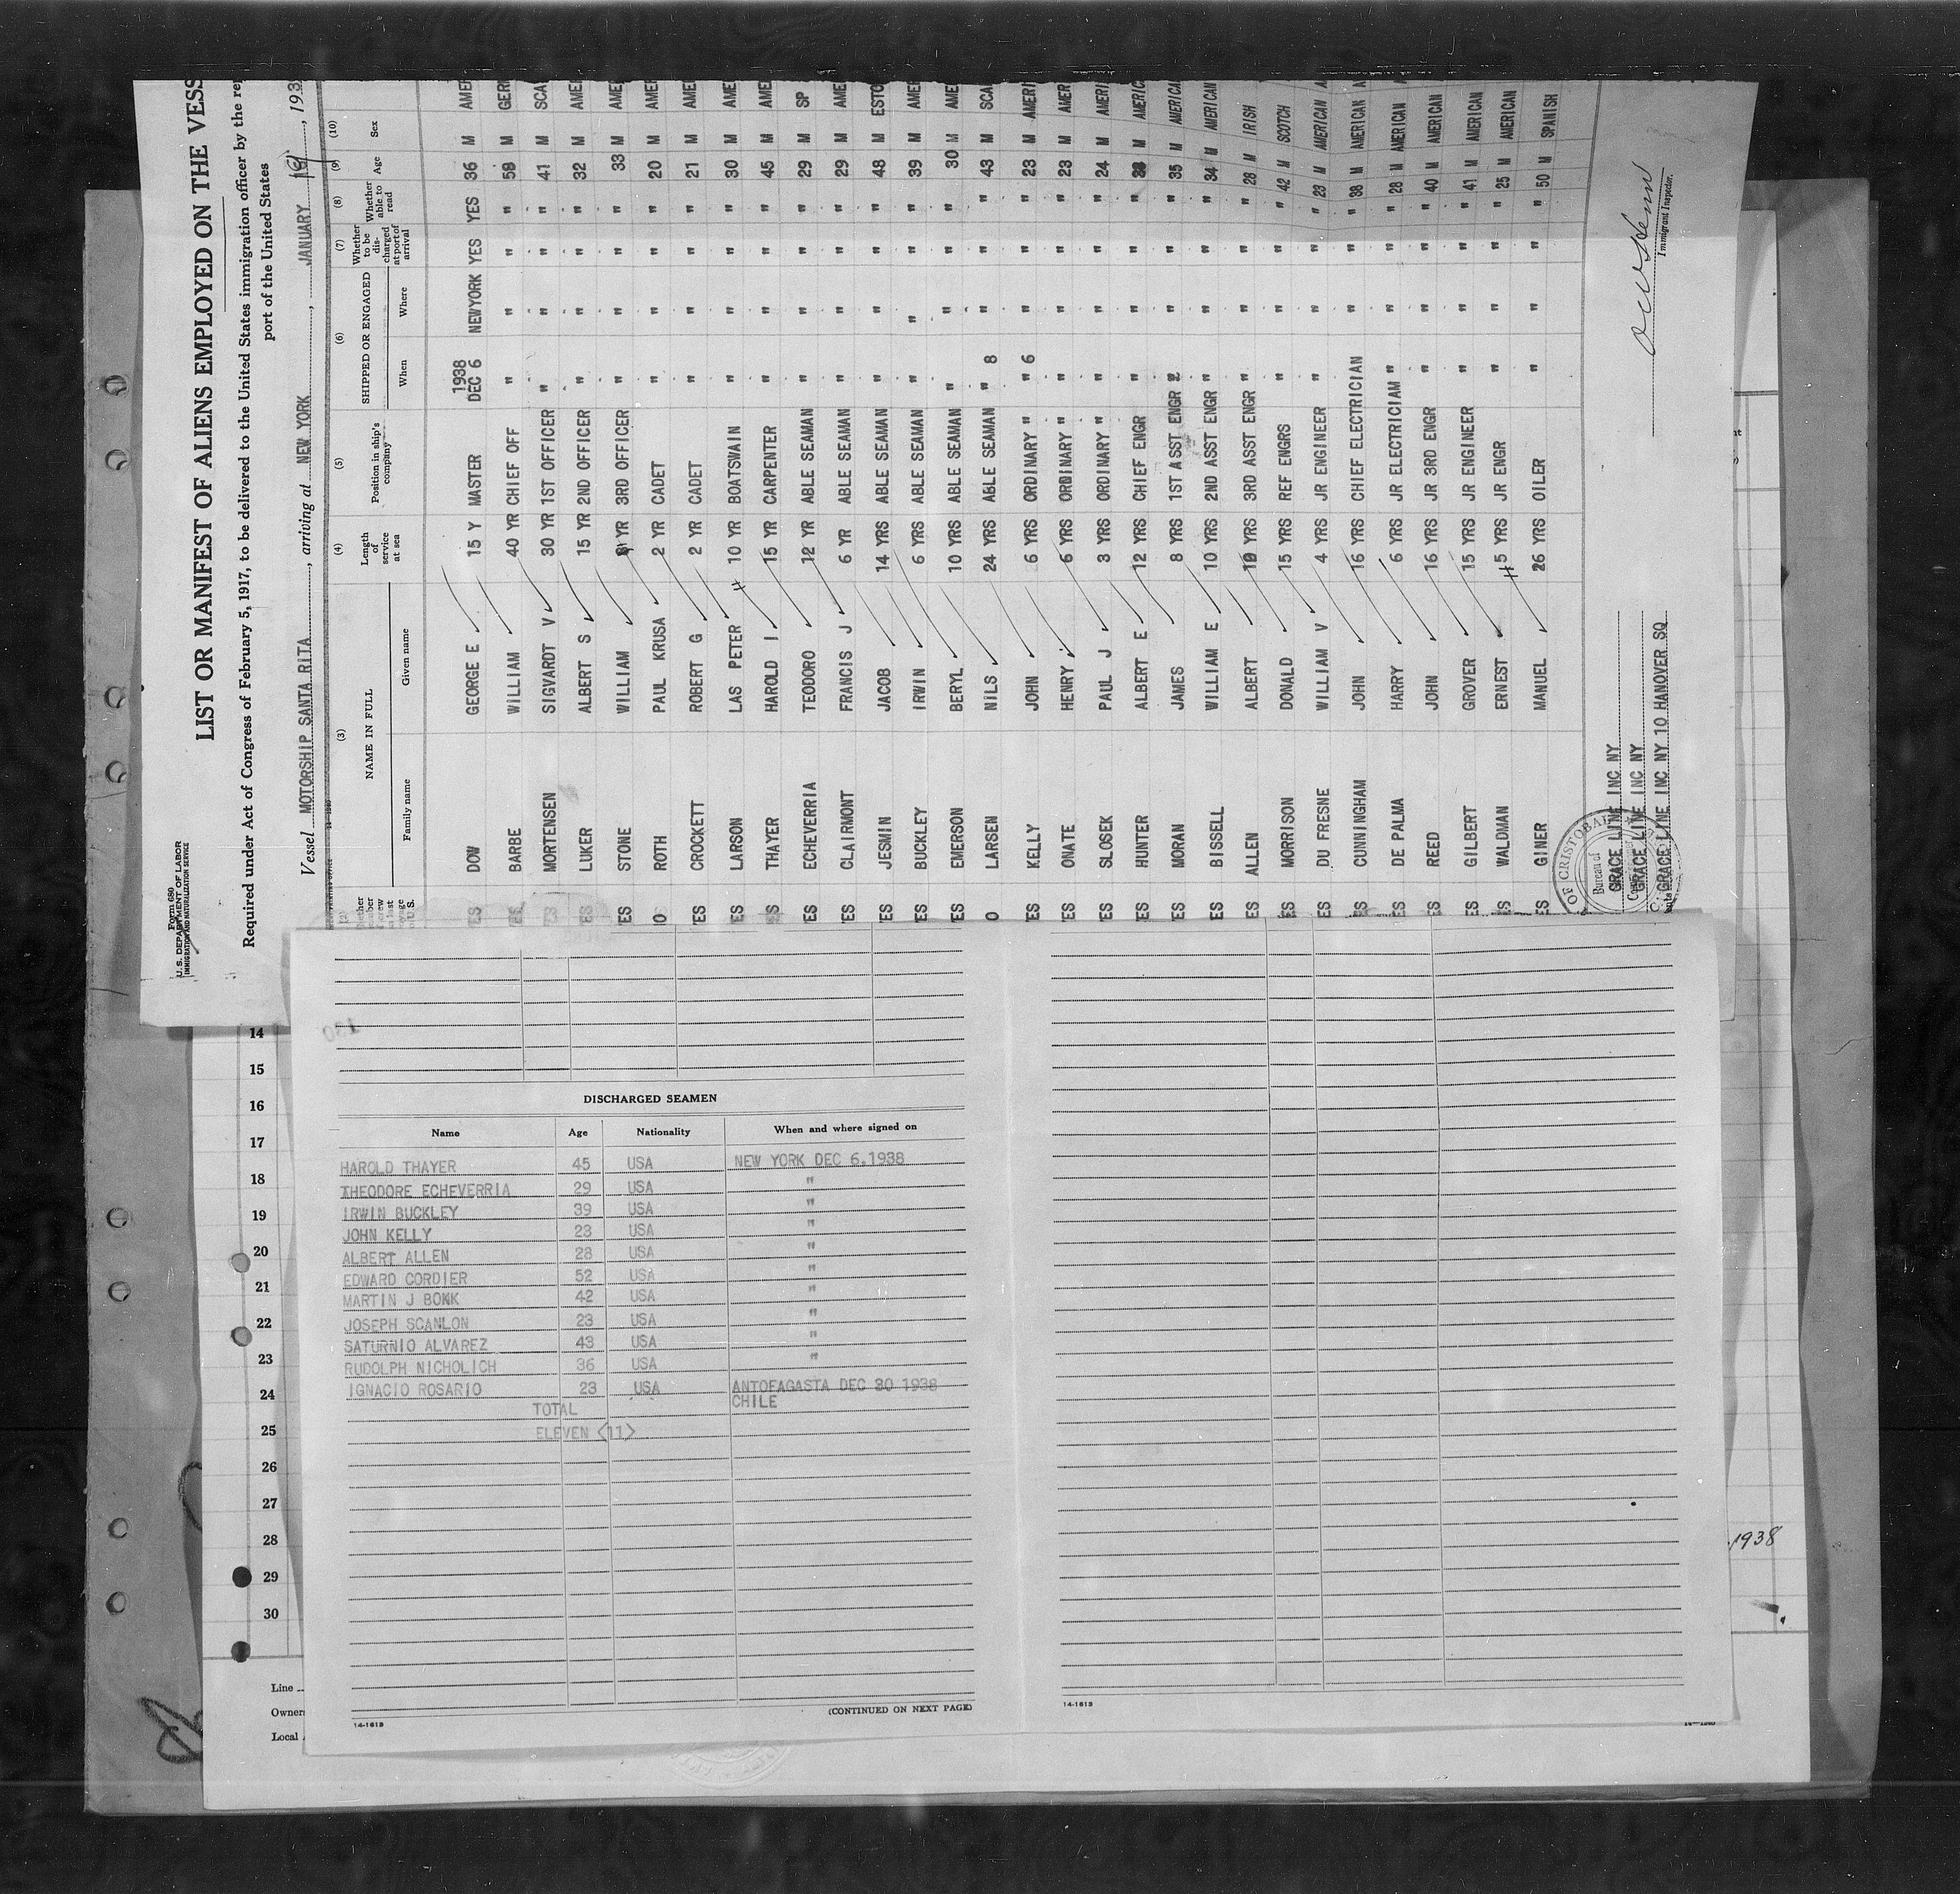 Form 680
U. S. DEPARTMENT OF LABOR
IMMIGRATION AND NATURALIZATION SERVICE
LIST OR MANIFEST OF ALIENS EMPLOYED ON THE VESS
Required under Act of Congress of February 5, 1917, to be delivered to the United States immigration officer by the re
port of the United States
Vessel MOTORSHIP SANTA RITA, arriving at NEW YORK, JANUARY 193
(3) (4) (5) (6) (7) (8) (9) (10)
NAME IN FULL Length of service at sea Position in ship's company SHIPPED OR ENGAGED Whether to be discharged at port of arrival Whether able to read Age Sex
Family name Given name When Where
DOW GEORGE E 15 Y MASTER 1938 DEC 6 NEWYORK YES YES 36 M AMER
BARBE WILLIAM 40 YR CHIEF OFF " " " " 58 M GER
ES MORTENSEN SIGVARDT V 30 YR 1ST OFFICER " " " " 41 M SCA
ES LUKER ALBERT S 15 YR 2ND OFFICER " " " " 32 M AME
ES STONE WILLIAM YR 3RD OFFICER " " " " 33 M AME
ROTH PAUL KRUSA 2 YR CADET " " " " 20 M AME
ES CROCKETT ROBERT G 2 YR CADET " " " " 21 M AME
ES LARSON LAS PETER 10 YR BOATSWAIN " " " " 30 M AME
ES THAYER HAROLD I 15 YR CARPENTER " " " " 45 M AME
ES ECHEVERRIA TEODORO 12 YR ABLE SEAMAN " " " " 29 M SP
ES CLAIRMONT FRANCIS J 6 YR ABLE SEAMAN " " " " 29 M AME
ES JESMIN JACOB 14 YRS ABLE SEAMAN " " " " 48 M ESTO
ES BUCKLEY IRWIN 6 YRS ABLE SEAMAN " " " " 39 M AME
ES EMERSON BERYL 10 YRS ABLE SEAMAN " " " " 30 M AME
O LARSEN NILS 24 YRS ABLE SEAMAN " 8 " " " 43 M SCA
ES KELLY JOHN 6 YRS ORDINARY " " 6 " " " 23 M AMERI
ES ONATE HENRY 6 YRS ORDINARY " " " " " 23 M AMER
ES SLOSEK PAUL J 3 YRS ORDINARY " " " " " 24 M AMERI
ES HUNTER ALBERT E 12 YRS CHIEF ENGR " " " " M AMERIC
ES MORAN JAMES 8 YRS 1ST ASST ENGR " " " " 35 M AMERICA
ES BISSELL WILLIAM E 10 YRS 2ND ASST ENGR " " " " 34 M AMERICAN
ES ALLEN ALBERT YRS 3RD ASST ENGR " " " " 28 M IRISH
ES MORRISON DONALD 15 YRS REF ENGRS " " " " 42 M SCOTCH
ES DU FRESNE WILLIAM V 4 YRS JR ENGINEER " " " " 23 M AMERICAN A
ES CUNNINGHAM JOHN 16 YRS CHIEF ELECTRICIAN " " " 38 M AMERICAN A
ES DE PALMA HARRY 6 YRS JR ELECTRICIAN " " " " 28 M AMERICAN
ES REED JOHN 16 YRS JR 3RD ENGR " " " " 40 M AMERICAN
ES GILBERT GROVER 15 YRS JR ENGINEER " " " " 41 M AMERICAN
ES WALDMAN ERNEST 5 YRS JR ENGR " " " " 25 M AMERICAN
ES GINER MANUEL 26 YRS OILER " " " " 50 M SPANISH
GRACE LINE INC NY
GRACE LINE INC NY
GRACE LINE INC NY 10 HANOVER SQ
Immigrant Inspector.
OF CRISTOBAL
Bureau of
14
15
16
17
18
19
20
21
22
23
24
25
26
27
28
29
30
Line
Owner
Local
DISCHARGED SEAMEN
Name Age Nationality When and where signed on
HAROLD THAYER 45 USA NEW YORK DEC 6.1938
THEODORE ECHEVERRIA 29 USA "
IRWIN BUCKLEY 39 USA "
JOHN KELLY 23 USA "
ALBERT ALLEN 28 USA "
EDWARD CORDIER 52 USA "
MARTIN J BONK 42 USA "
JOSEPH SCANLON 23 USA "
SATURNIO ALVAREZ 43 USA "
RUDOLPH NICHOLICH 36 USA "
IGNACIO ROSARIO 23 USA ANTOFAGASTA DEC 30 1938
CHILE
TOTAL
ELEVEN <11>
(CONTINUED ON NEXT PAGE)
14-1613
14-1613
1938